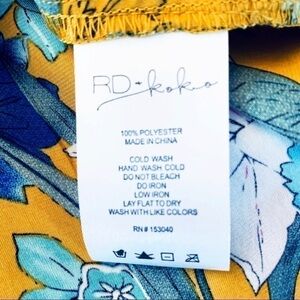 RD + koko
100% POLYESTER
MADE IN CHINA
COLD WASH
HAND WASH: COLD
DO NOT BLEACH
DO IRON
LOW IRON
LAY FLAT TO DRY
WASH WITH LIKE COLORS
RN# 153040